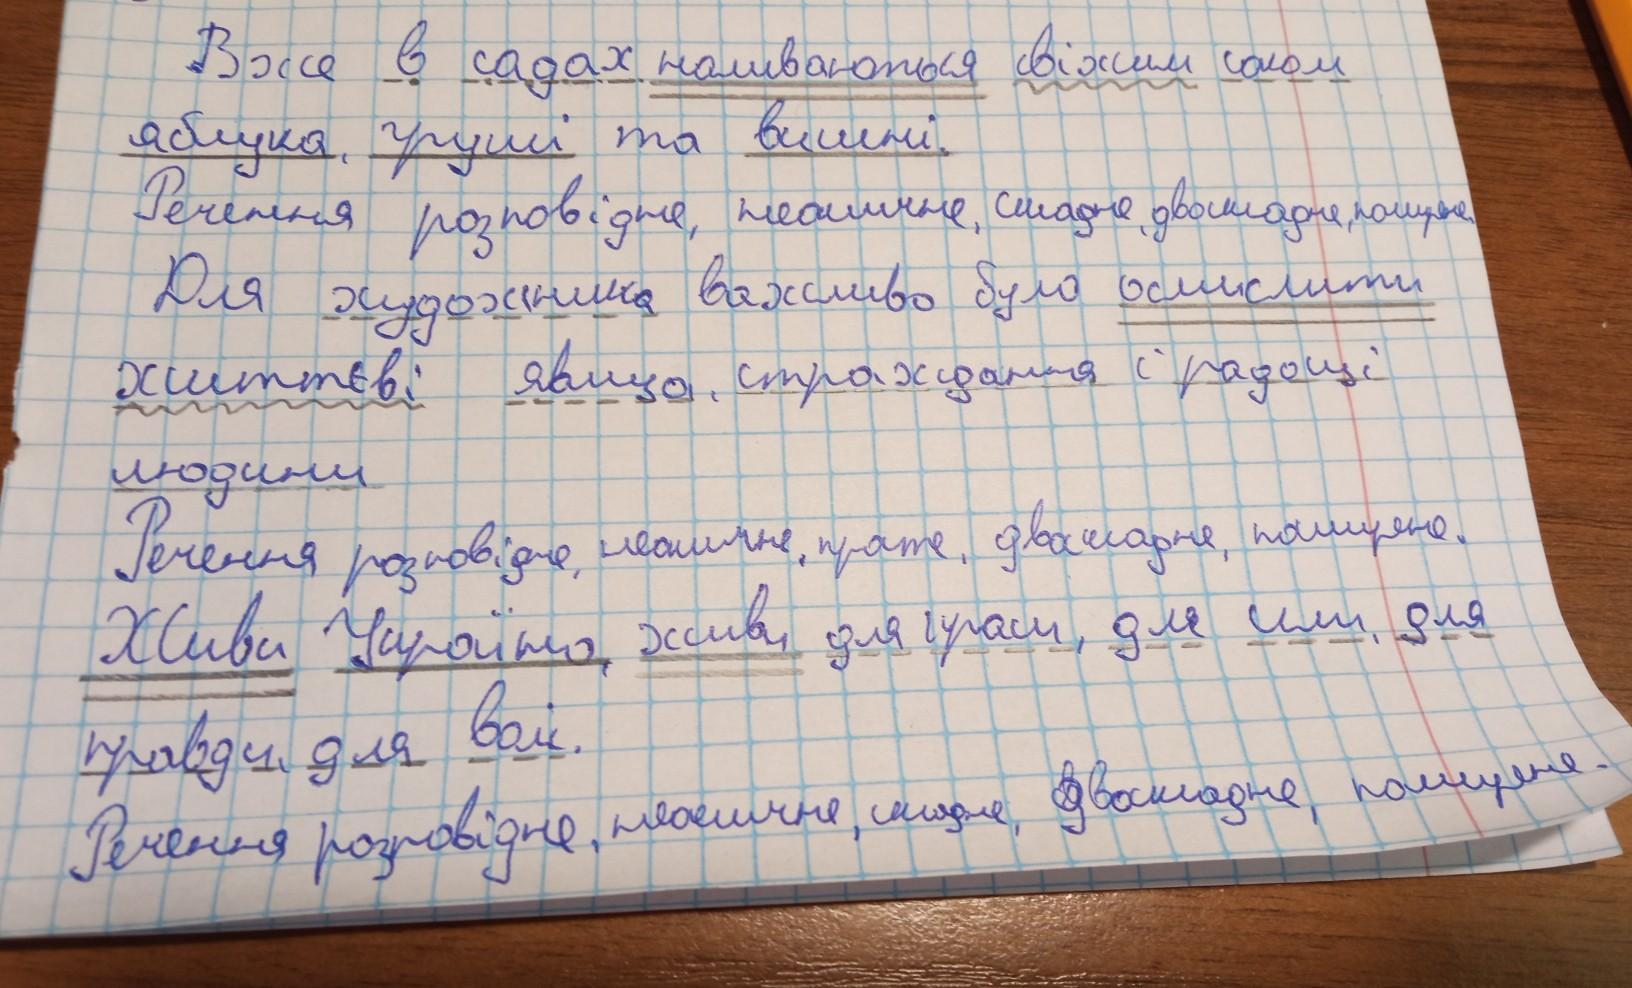 Вже в садах наливаються свіжим соком
яблука, груші та вишні.
Речення розповідне, неокличне, складне, двоскладне, поширене.
Для художника важливо було осмислити
життєві явища, страждання і радощі
людини
Речення розповідне, неокличне, просте, двоскладне, поширене.
Живи Україно, живи для краси, для сили, для
правди, для волі.
Речення розповідне, неокличне, складне, двоскладне, поширене.